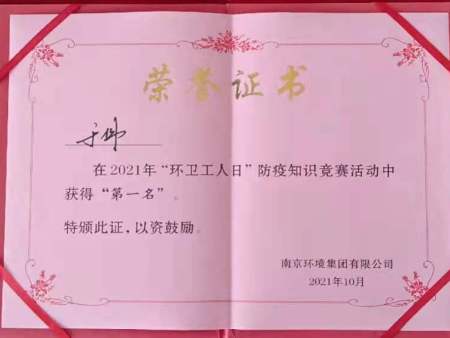 荣誉证书
在2021年“环卫工人日”防疫知识竞赛活动中
获得“第一名”。
特颁此证，以资鼓励。
南京环境集团有限公司
2021年10月